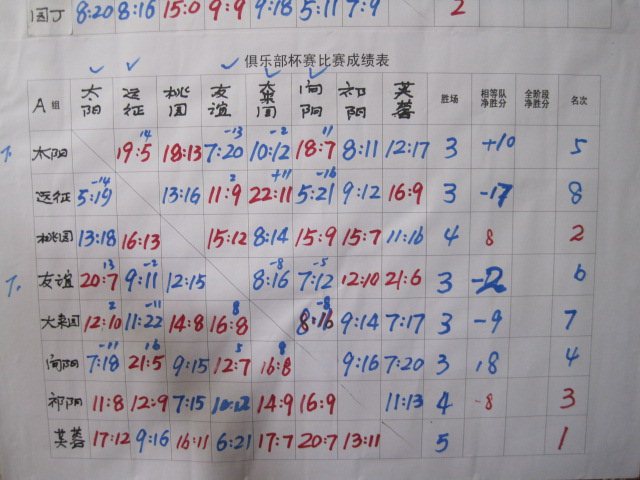 园丁 8:20 8:16 15:0 9:9 9:18 5:11 7:9 2
俱乐部杯赛比赛成绩表
A组 太阳 远征 桃园 友谊 大来团 向阳 祁阳 芙蓉 胜场 相等队净胜分 全阶段净胜分 名次
太阳 19:5 14 18:13 7:20 -13 10:12 -2 18:7 11 8:11 12:17 3 +10 5
远征 5:19 -14 13:16 11:9 2 22:11 +11 5:21 -16 9:12 16:9 3 -17 8
桃园 13:18 16:13 15:12 8:14 15:9 15:7 11:16 4 8 2
友谊 20:7 13 9:11 -2 12:15 8:16 -8 7:12 -5 12:10 21:6 3 -2 6
大来团 12:10 2 11:22 -11 14:8 16:8 8 8:16 -8 9:14 7:17 3 -9 7
向阳 7:18 -11 21:5 16 9:15 12:7 5 16:8 8 9:16 7:20 3 18 4
祁阳 11:8 12:9 7:15 10:12 14:9 16:9 11:13 4 -8 3
芙蓉 17:12 9:16 16:11 6:21 17:7 20:7 13:11 5 1